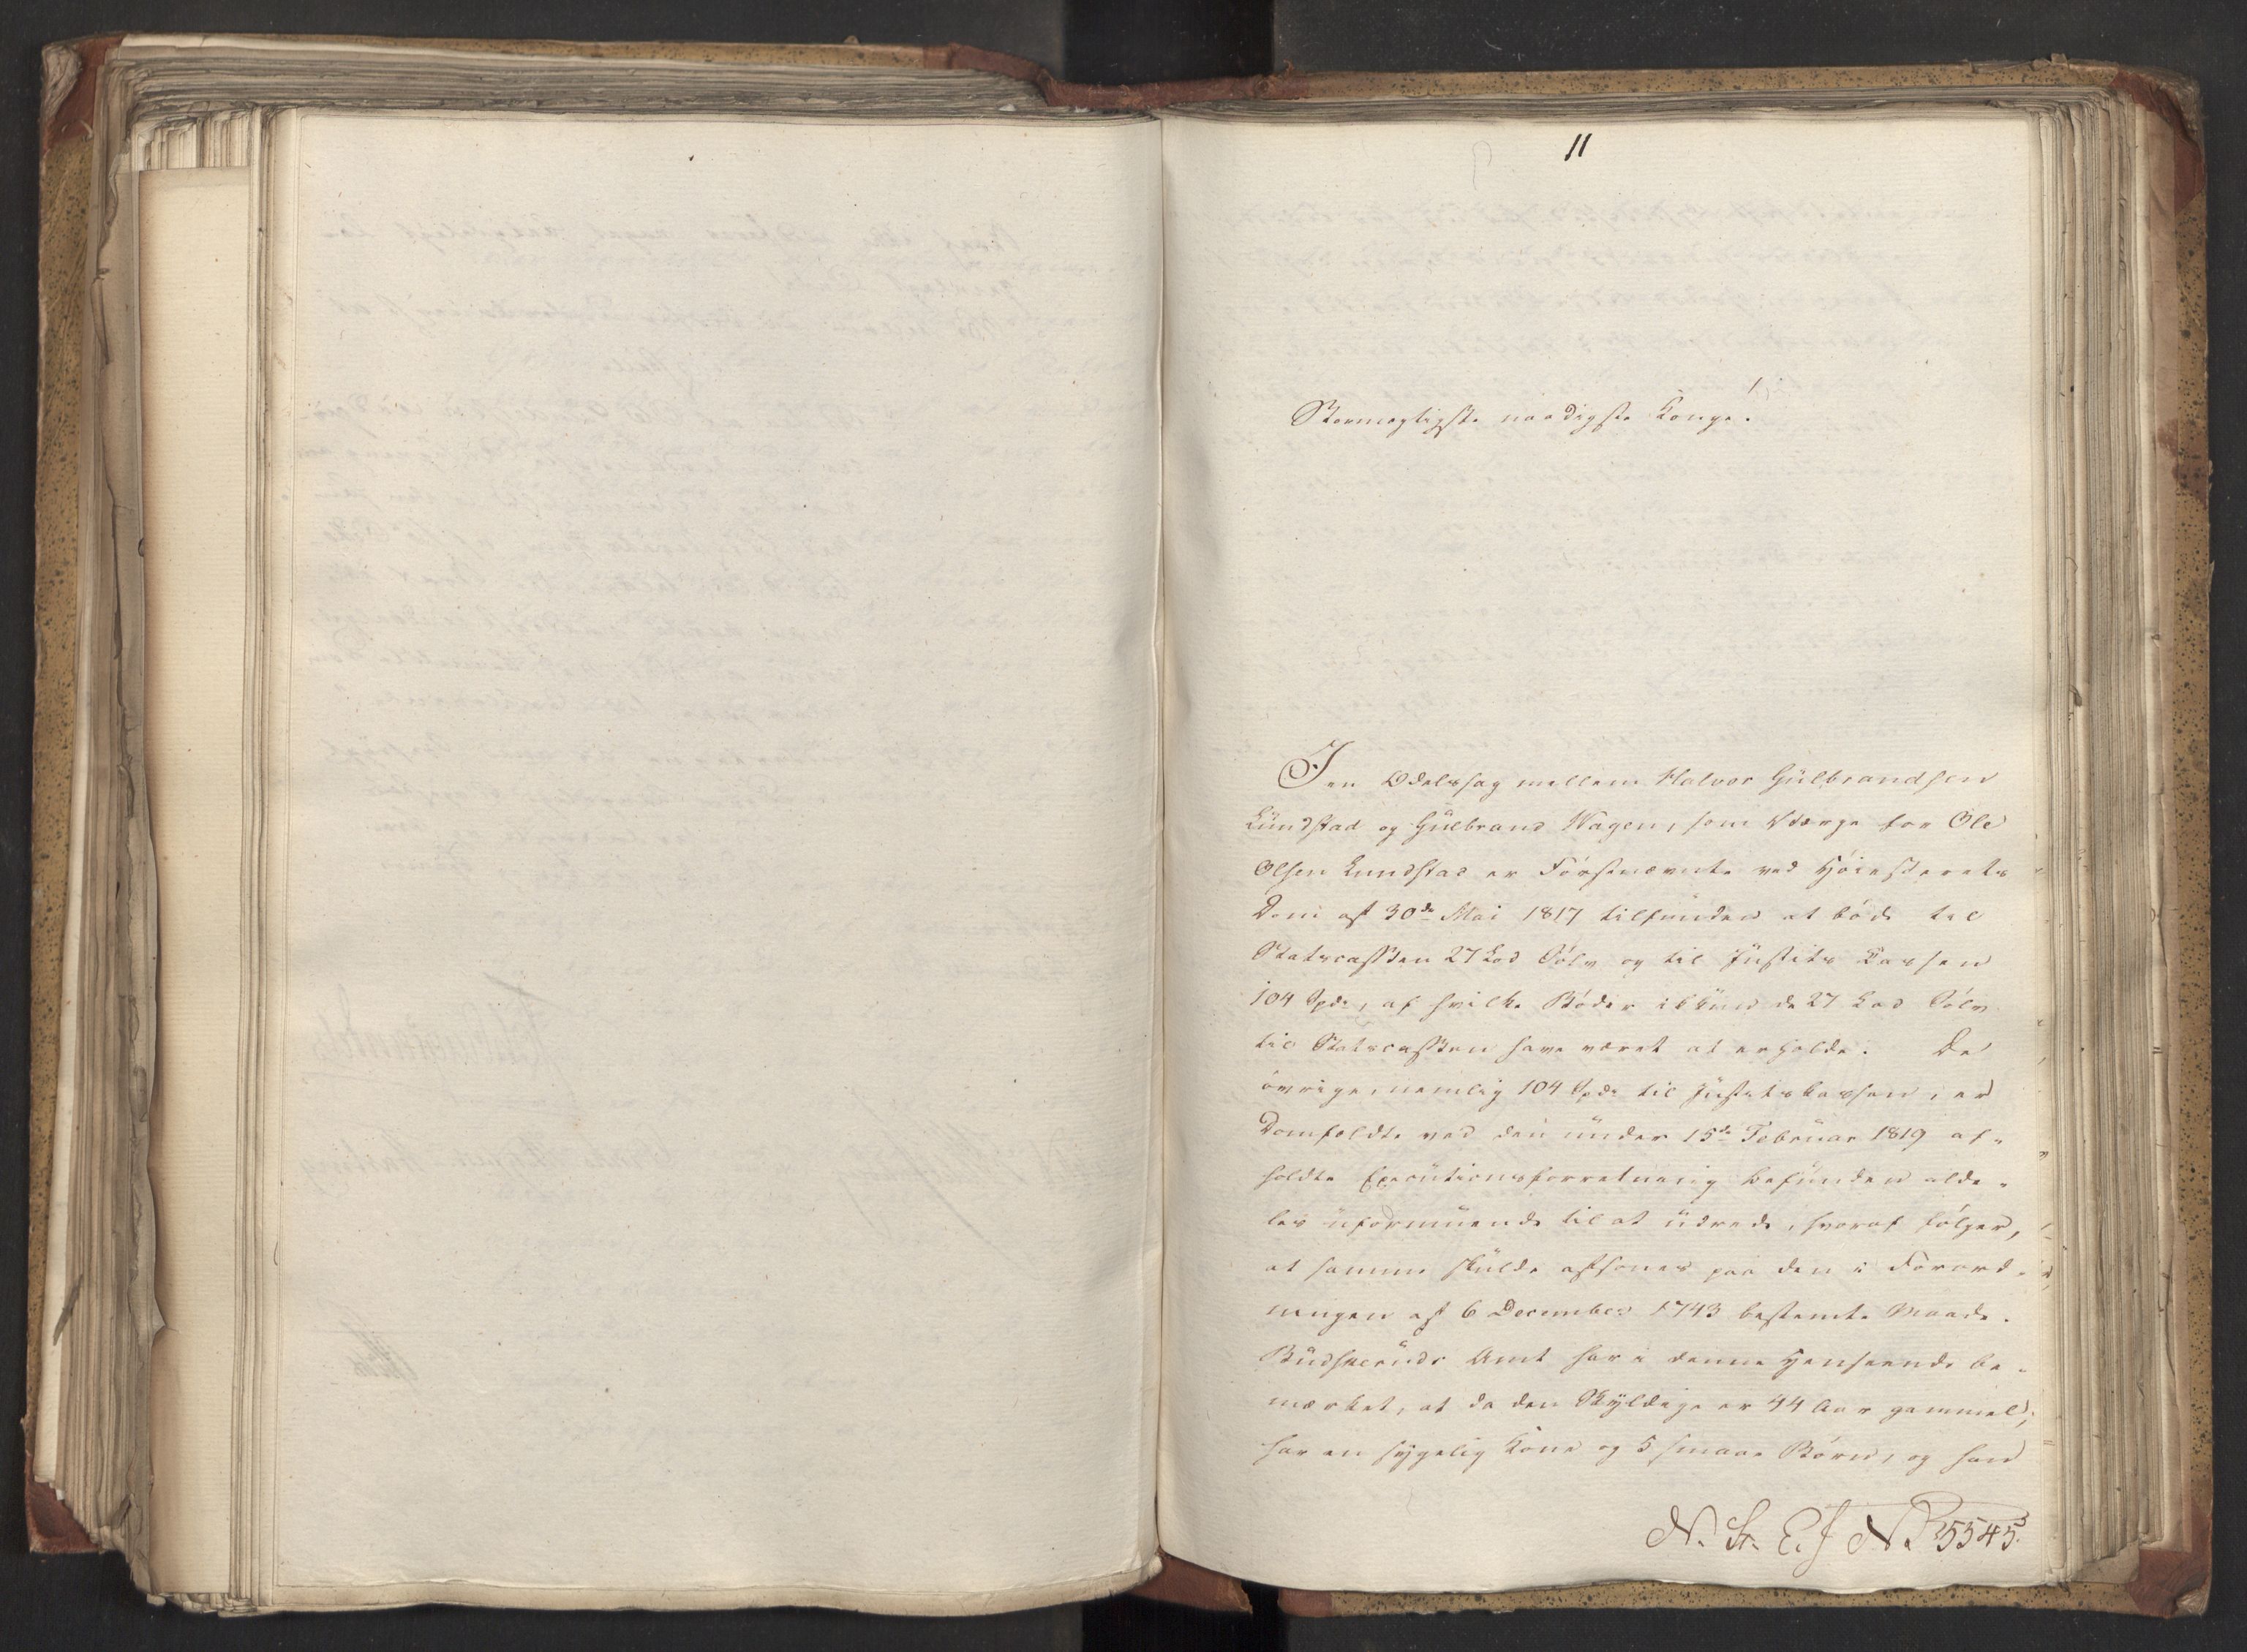 11
Stormægtigste naadigste Konge!
I en Odelssag mellem Halvor Gülbrandsen
Lündstad og Gülbrand Wagen, som Værge for Ole
Olsen Lundstad er Förstnævnte ved Höiesterets
Dom af 30de Mai 1817 tilfunden at böde til
Statscassen 27 Lod Sölv og til Jüstits Cassen
104 Spd, af hvilke Böder ikkün de 27 Lod Sölv
til Statscassen have været at erholde. De
övrige, nemlig 104 Spd til Jüstitskassen, er
Domfældte ved den ünder 15de Februar 1819 af-
holdte Executionsforretning befünden alde-
les üformüende til at üdrede, hvoraf fölger,
at samme skülde afsones paa den i Forord-
ningen af 6 December 1743 bestemte Maade.
Büdskerüds Amt har i denne Henseende be-
mærket, at da den Skyldige er 44 Aar gammel,
har en sygelig Kone og 5 smaae Börn, og han
N. St. E. J No 5545.